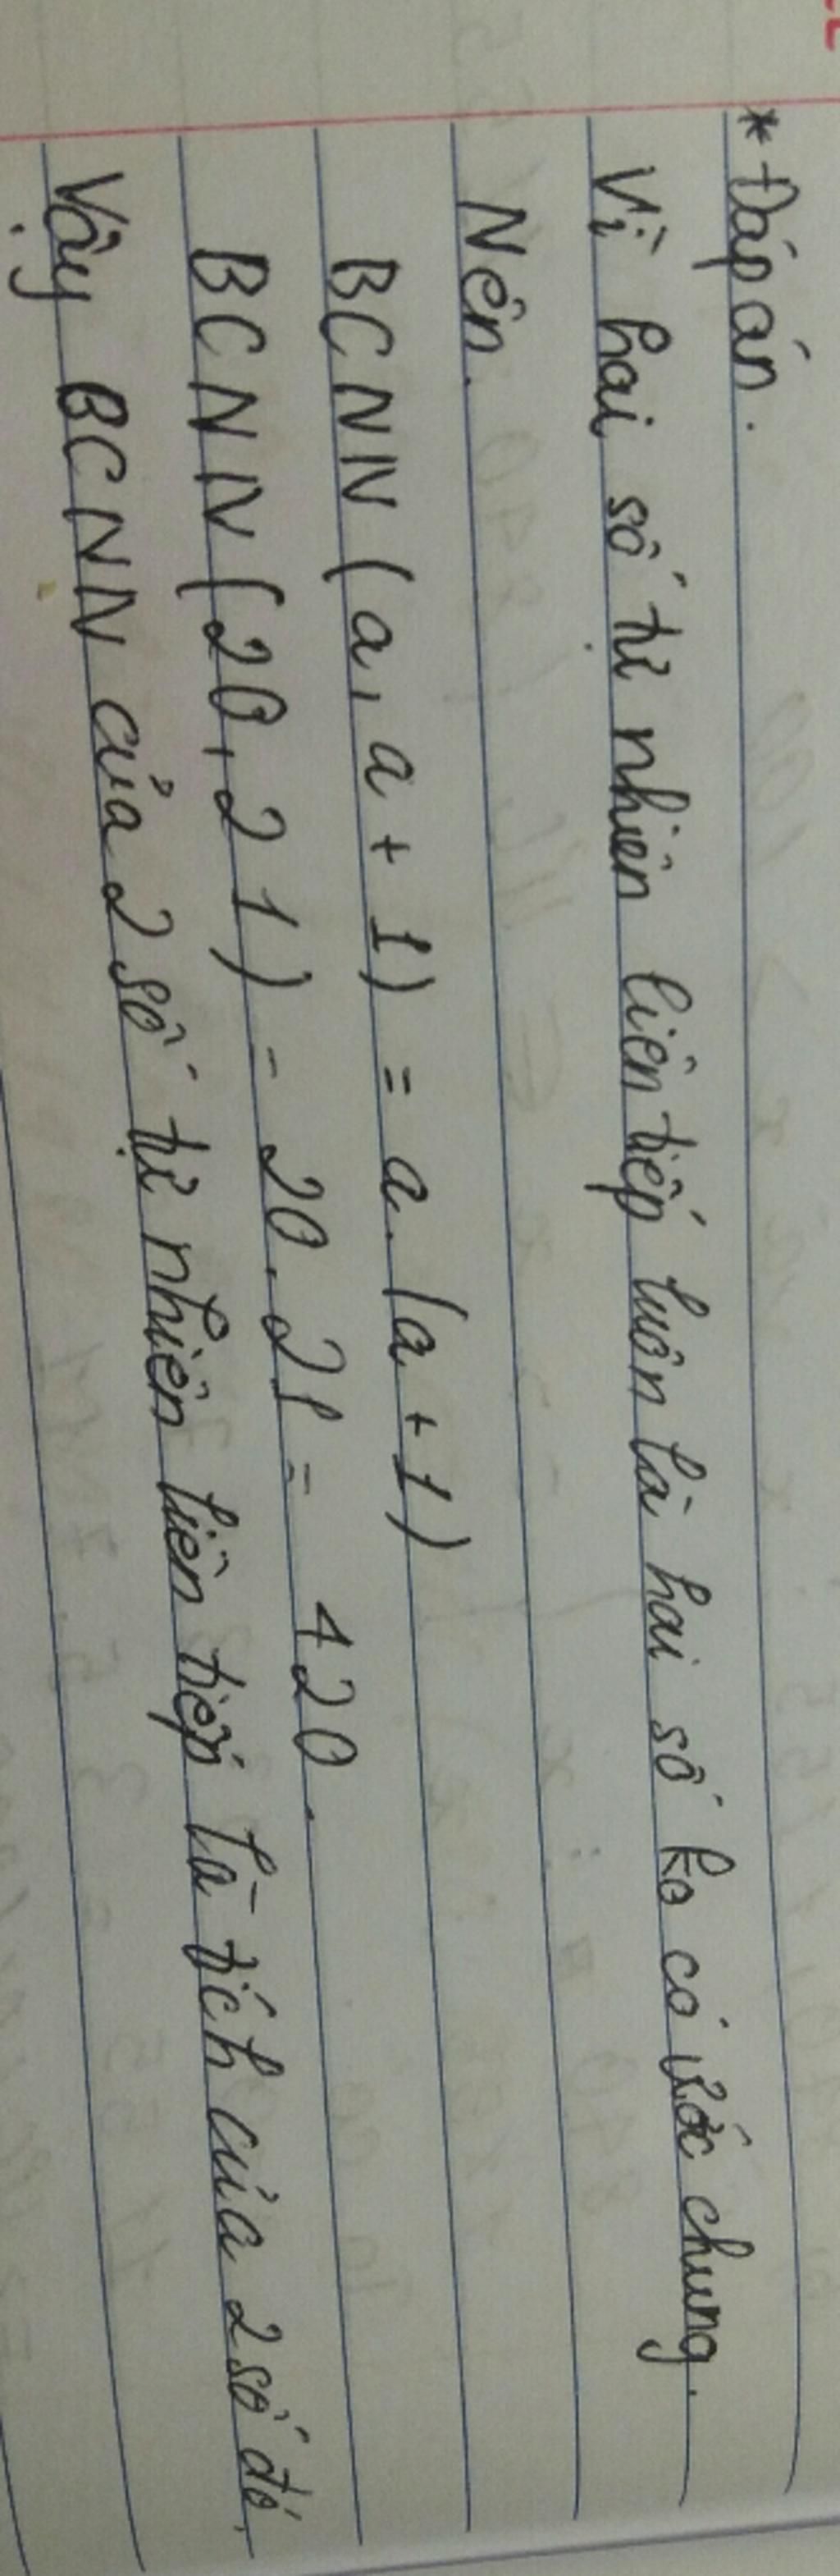 * Đáp án.
Vì hai số tự nhiên liên tiếp luôn là hai số ko có ước chung.
Nên.
BCNN (a, a + 1) = a. (a + 1)
BCNN (20, 21) = 20. 21 = 420.
Vậy BCNN của 2 số tự nhiên liên tiếp là tích của 2 số đó.